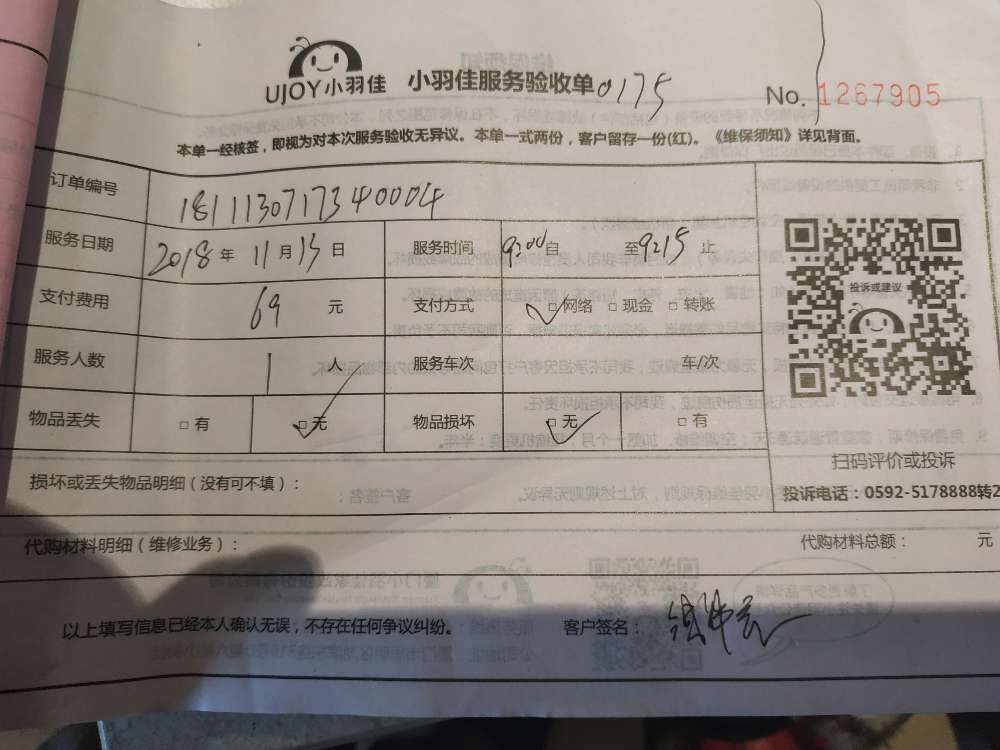 UJOY小羽佳 小羽佳服务验收单0175 No. 1267905
本单一经核签，即视为对本次服务验收无异议。本单一式两份，客户留存一份(红)。《维保须知》详见背面。
订单编号 1811130717340004
服务日期 2018年11月13日 服务时间 9:00自 至9:15止
支付费用 69 元 支付方式 □网络 □现金 □转账
投诉或建议
服务人数 1 人 服务车次 车/次
物品丢失 □有 □无 物品损坏 □无 □有
扫码评价或投诉
损坏或丢失物品明细（没有可不填）：
投诉电话：0592-5178888转2
代购材料明细（维修业务）： 代购材料总额： 元
以上填写信息已经本人确认无误，不存在任何争议纠纷。 客户签名：